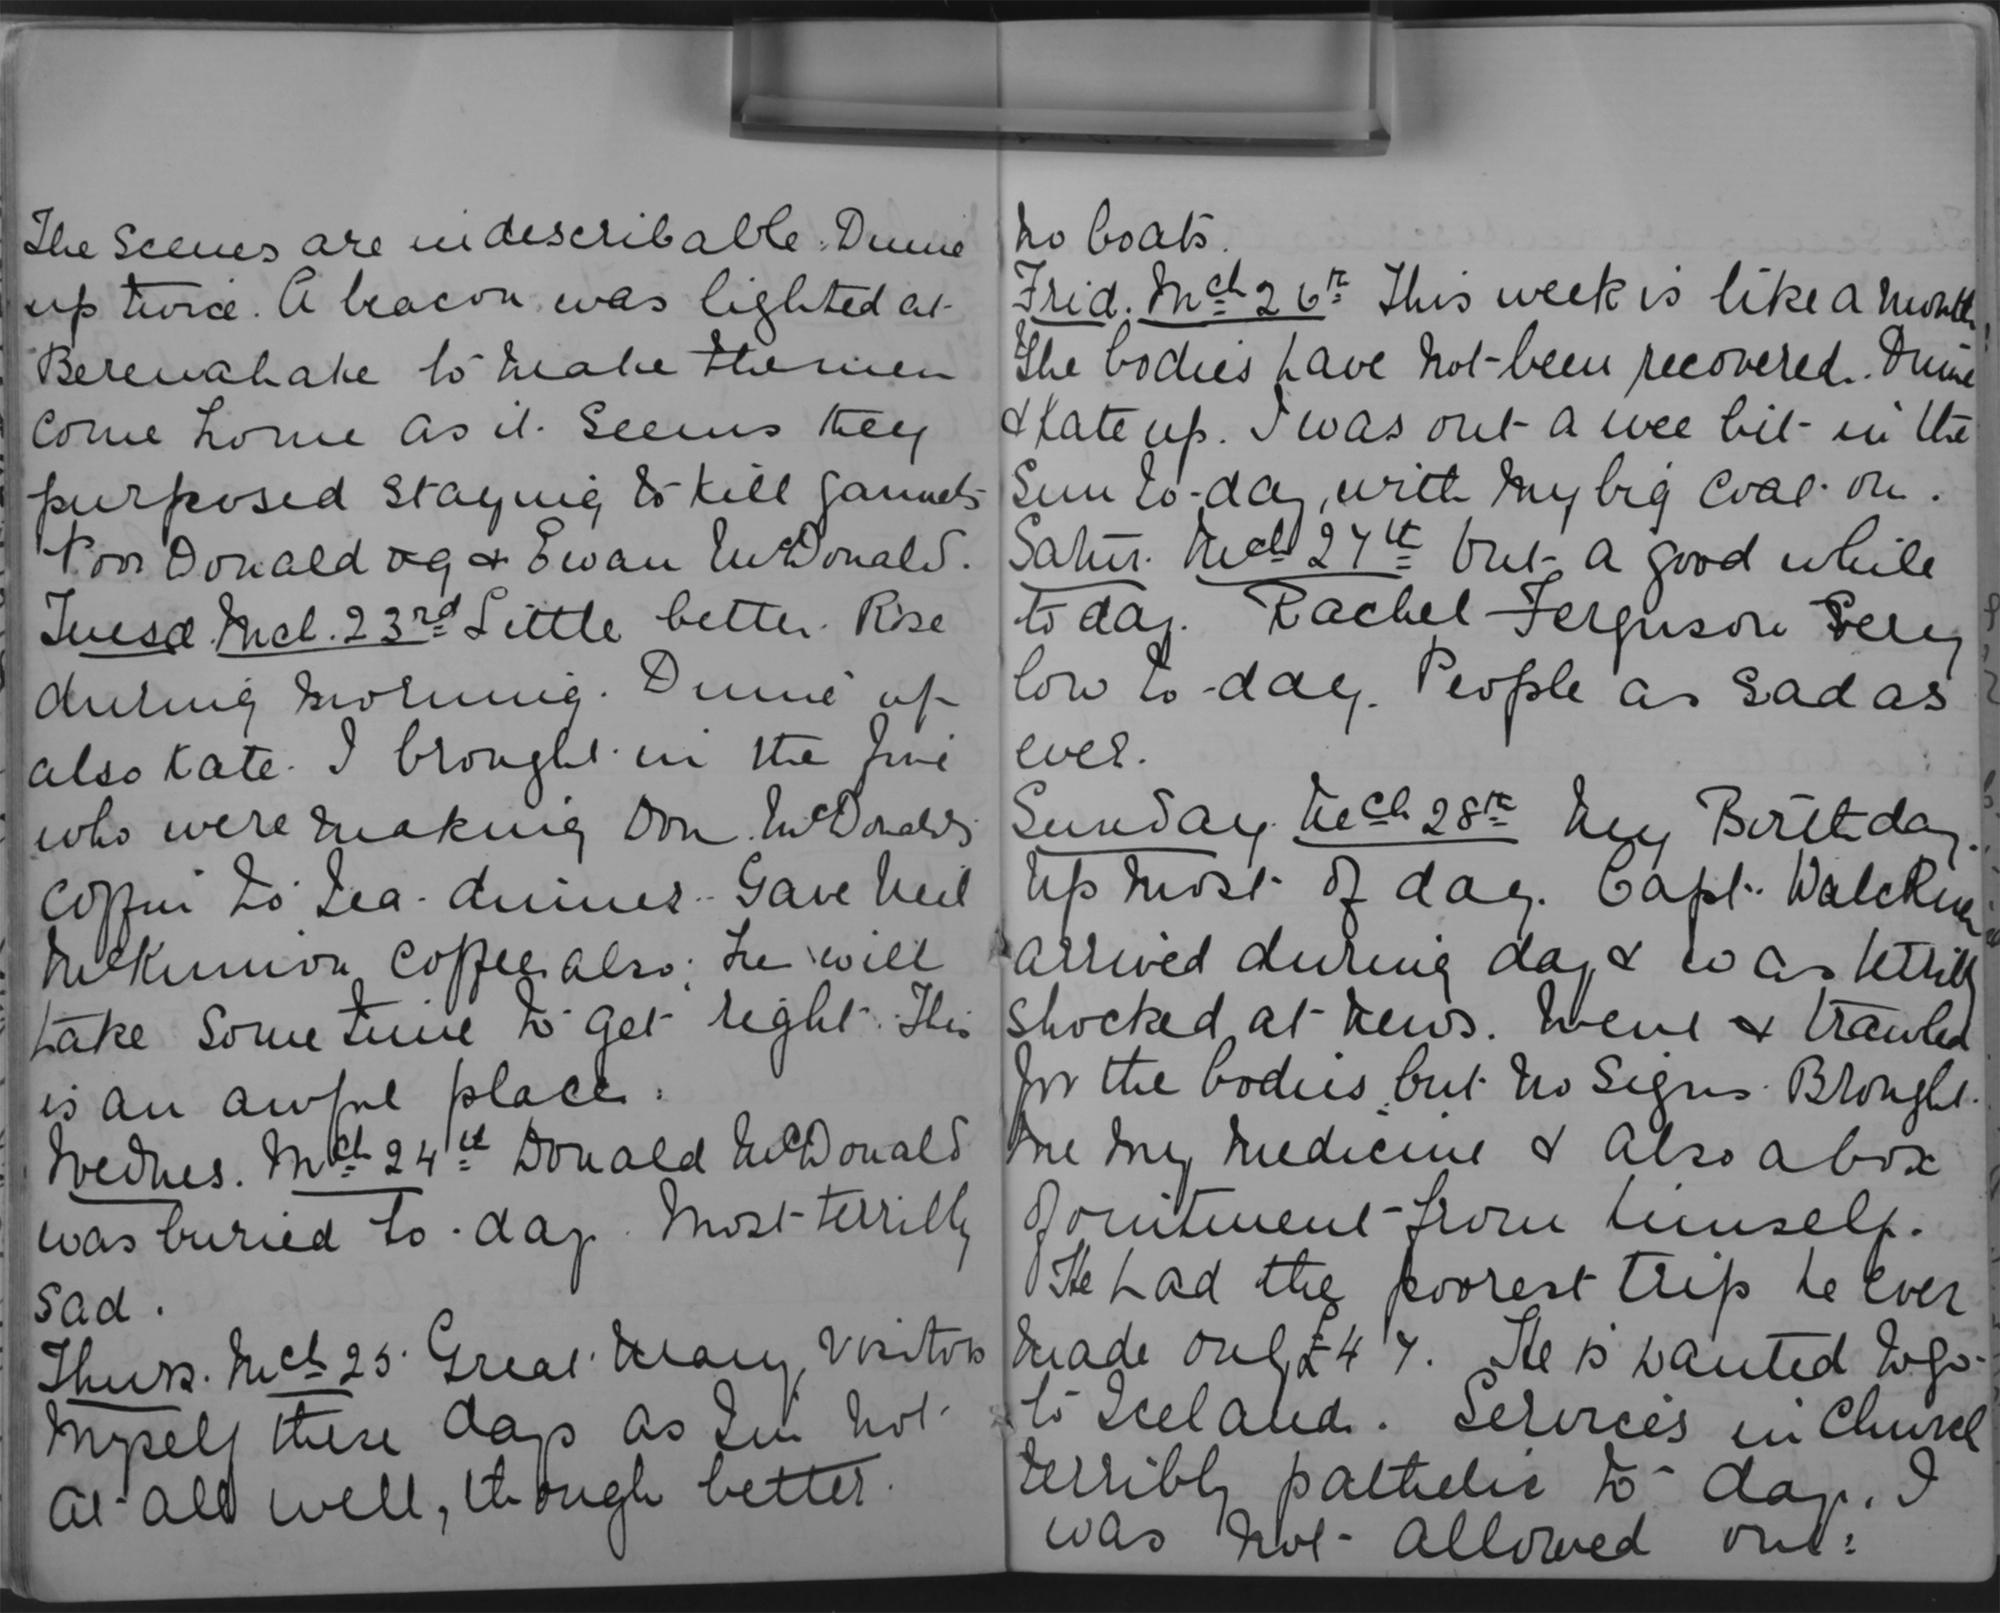 The Scenes are indescribable. Dunie
up twice. A beacon was lighted at
Berenahake to make the men
come home as it seems they
purposed staying to kill gannets
Poor Donald og & Ewan McDonald.
Tuesd. Mch. 23rd Little better. Rose
during morning. Dunie up
also Kate. I brought in the five
who were making Don. McDonald's
coffin to Tea - dinner. Gave Neil
McKinnon coffee also; he will
take some time to get right. This
is an awful place.
Wednes. Mch 24th Donald McDonald
was buried to-day. Most terribly
sad.
Thurs. Mch 25. Great many visitors
myself these days as I'm not
at all well, though better.
No boats.
Frid. Mch 26th This week is like a month.
The bodies have not been recovered. Dunie
& Kate up. I was out a wee bit in the
Sun to-day, with my big coat on.
Satur. Mch 27th Out a good while
to day. Rachel Ferguson very
low to-day. People as sad as
ever.
Sunday Mch 28th My Birthday.
Up most of day. Capt. Walker
arrived during day & was terribly
shocked at news. Went & trawled
for the bodies, but no signs. Brought
me my medicine & also a box
of ointment from himself.
He had the poorest trip he ever
made only £47. He is wanted to go
to Iceland. Services in Church
terribly pathetic to-day. I
was not allowed out.